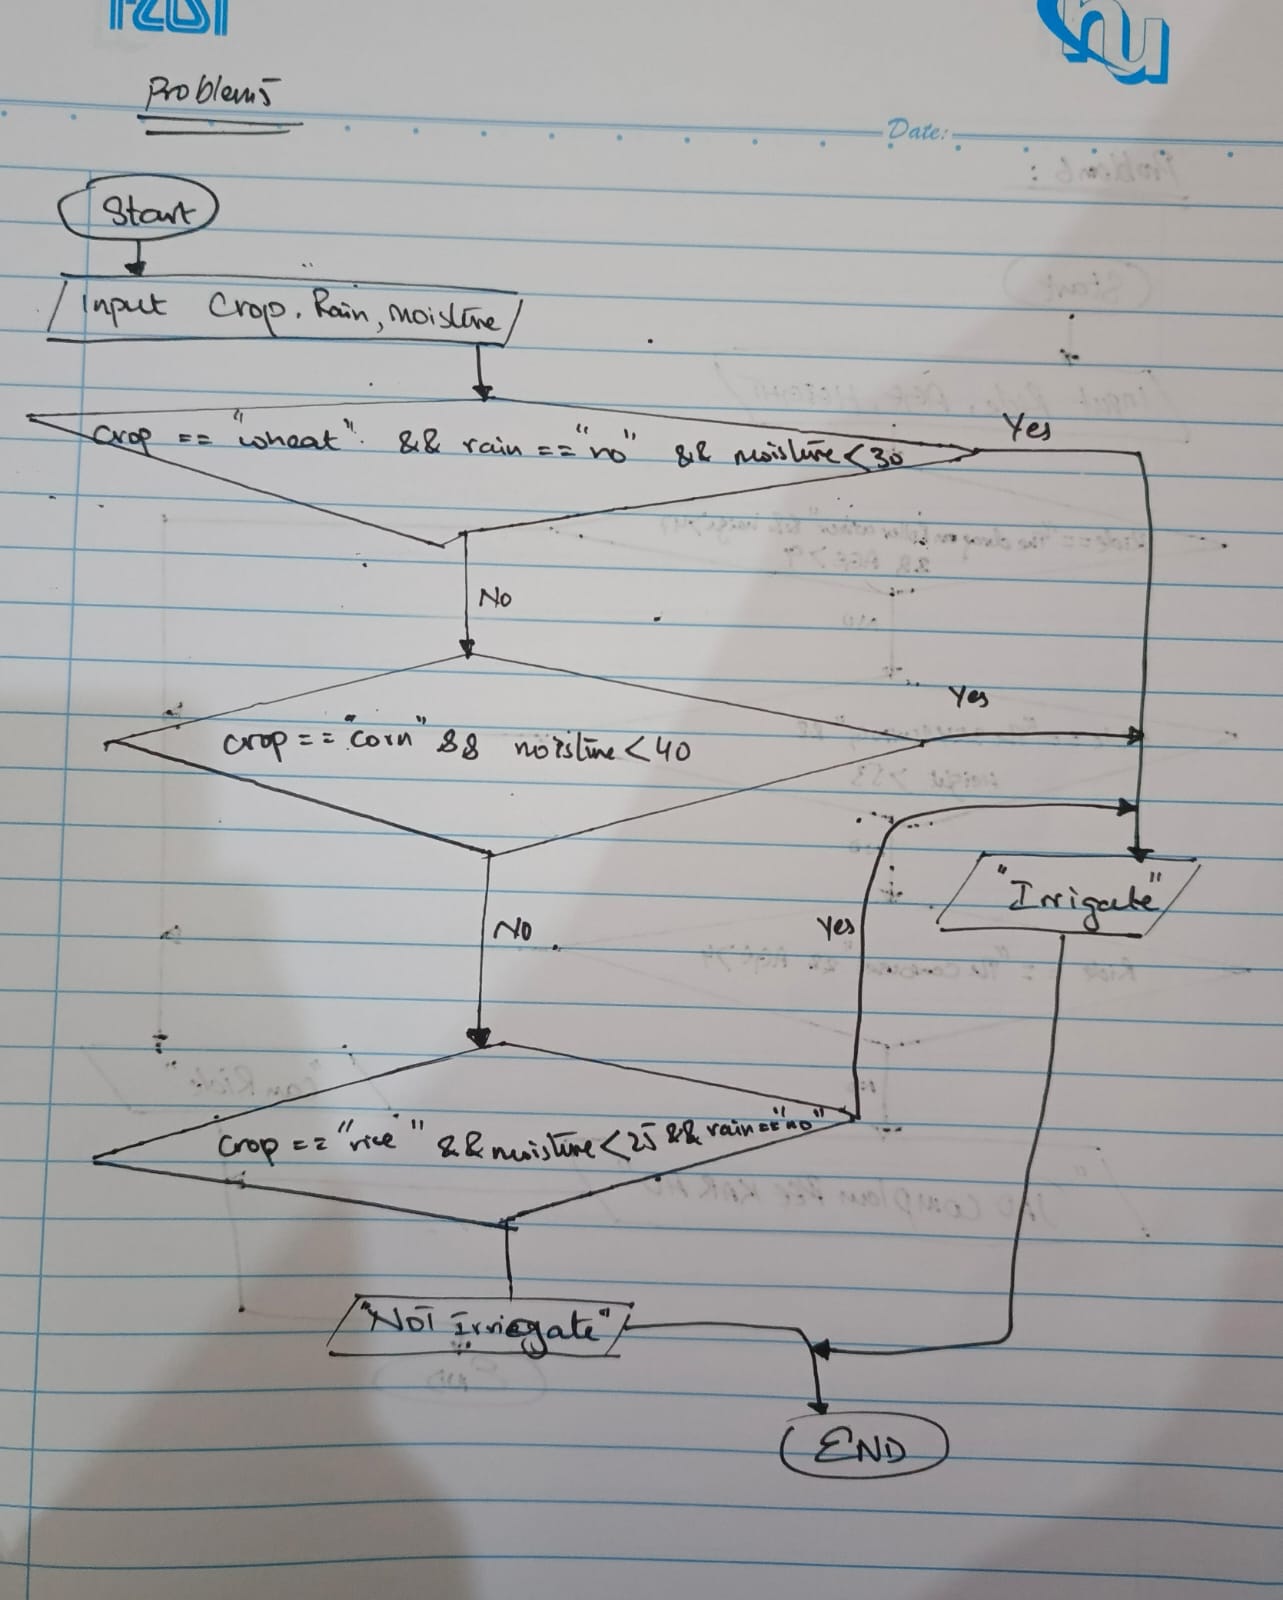 Problem 5
Date:
Start
Input Crop, Rain, moisture
crop == "wheat" && rain == "no" && moisture < 30
Yes
No
Yes
crop == "corn" && moisture < 40
No
Yes
"Irrigate"
crop == "rice" && moisture < 25 && rain == "no"
"NOT Irriegate"
END